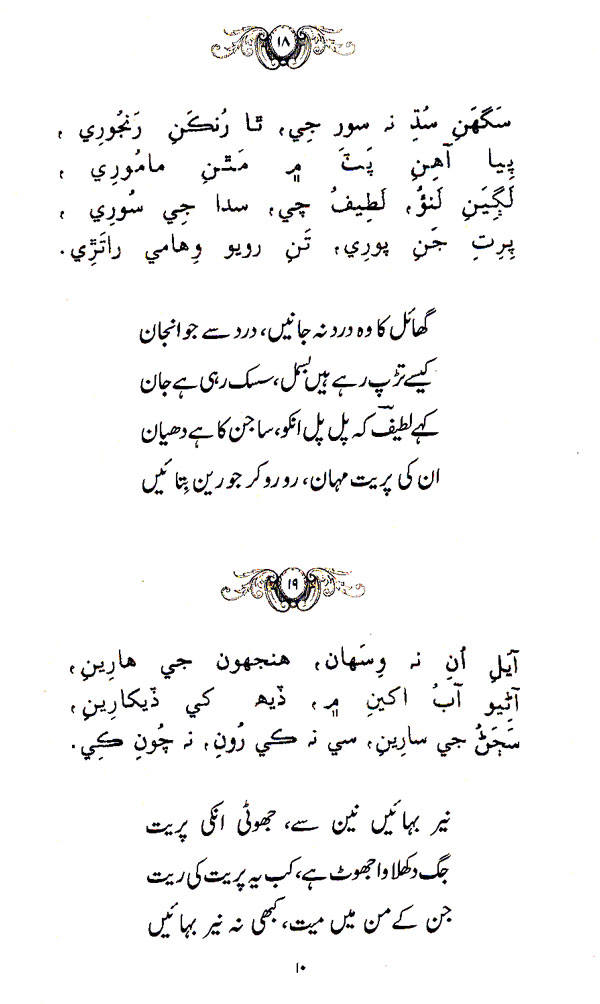 ۱۸
سَگَهَنِ سُڌِ نہ سور جِي، ٿا رُنڪَنِ رَنجُورِي،
پِيا آهِنِ پَٽَ ۾ مَٿَنِ مامُورِي،
لَڳِيَنِ لَنؤُ، لَطِيفُ چي، سدا جِي سُورِي،
پِرِتِ جَنِ پورِي، تَنِ رويو وِهامي راتَڙِي.
گھائل کا وہ درد نہ جانیں، درد سے جو انجان
کیسے تڑپ رہے ہیں بسمل، سسک رہی ہے جان
کہے لطیفؔ کہ پل پل انکو، ساجن کا ہے دھیان
ان کی پریت مہان، رو رو کر جو رین بِتائیں
۱۹
آيَلِ اُنِ نہ وِسَهان، هنجهون جي هارِينِ،
آڻِيو آبُ اکينِ ۾، ڏيھ کي ڏيکارِينِ،
سَڄَڻُ جي سارِينِ، سي نہ ڪي رُونِ، نہ چُونِ ڪِي.
نیر بہائیں نین سے، جھوٹی انکی پریت
جگ دکھلاوا جھوٹ ہے، کب یہ پریت کی ریت
جن کے من میں میت، کبھی نہ نیر بہائیں
۱۰